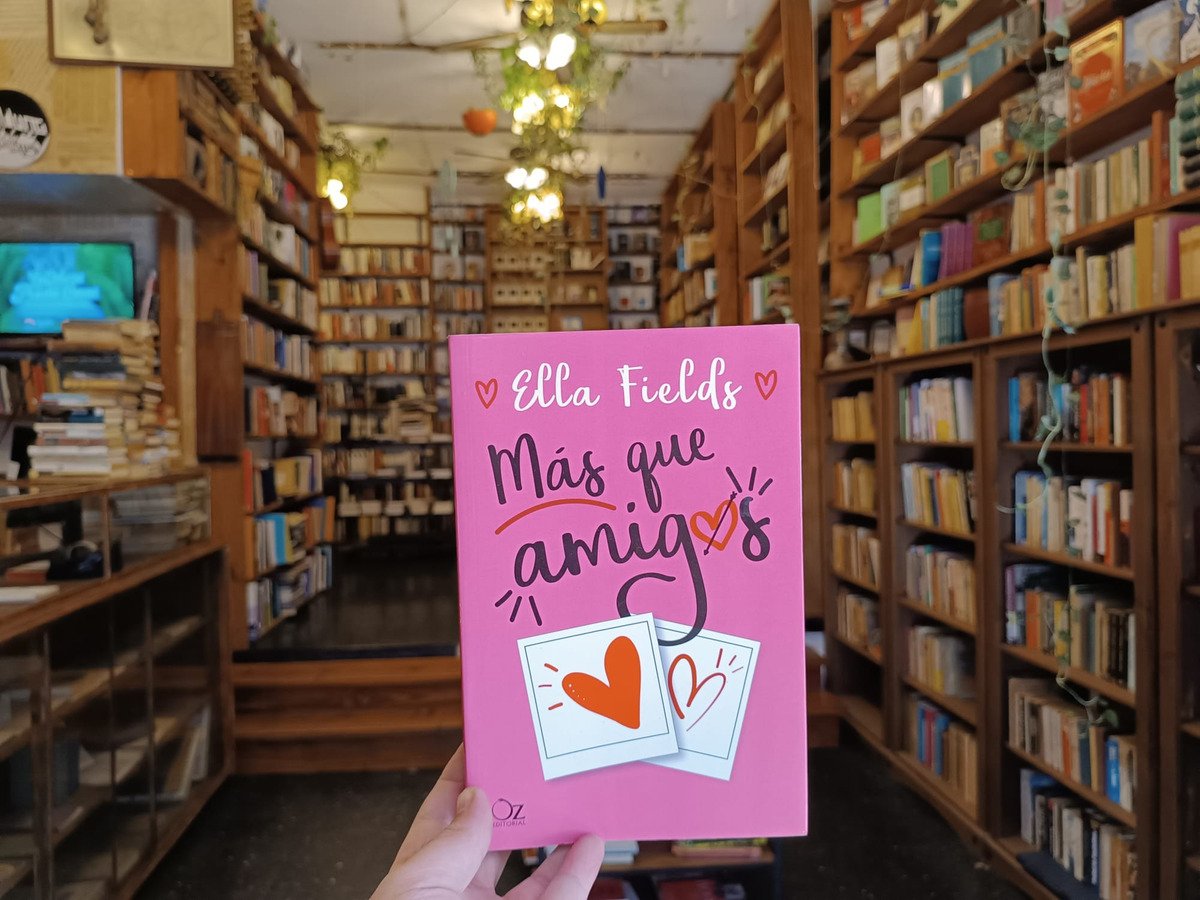 Ella Fields
Más que
amigos
Oz
EDITORIAL